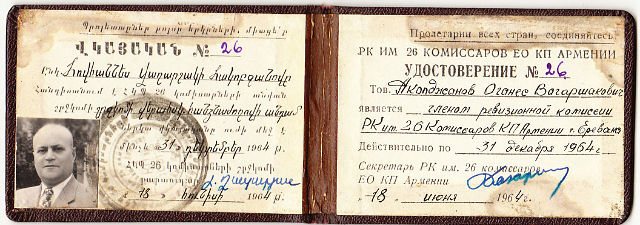 Պրոլետարներ բոլոր երկրների, միացե՛ք
ՎԿԱՅԱԿԱՆ № 26
Ընկ. Հովհաննես Վաղարշակի Հակոբջանովը
Հանդիսանում է ՀԿԿ 26 կոմիսարների անվան
շրջկոմի
31 դեկտեմբեր 1964 թ.
ՀԿԿ 26 կոմիսարների շրջկոմի
քարտուղար
18 հունիսի 1964 թ.
Пролетарии всех стран, соединяйтесь
РК ИМ 26 КОМИССАРОВ ЕО КП АРМЕНИИ
УДОСТОВЕРЕНИЕ № 26
Тов. Акопджанов Оганес Вагаршакович
является членом ревизионной комиссии
РК им. 26 Комиссаров КП Армении г. Ереван
Действительно по 31 декабря 1964 г.
Секретарь РК им. 26 комиссаров
ЕО КП Армении
„18 июня 1964 г.